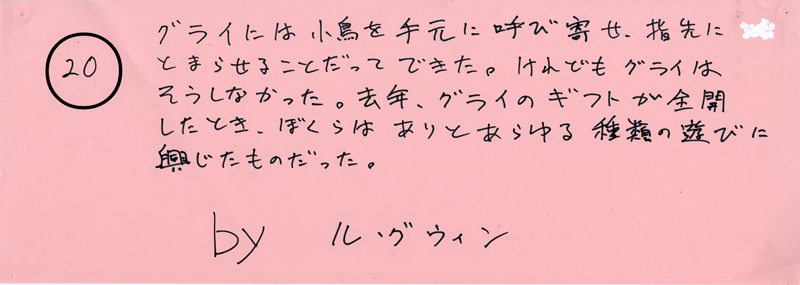 20
グライには小鳥を手元に呼び寄せ、指先に
とまらせることだってできた。けれどもグライは
そうしなかった。去年、グライのギフトが全開
したとき、ぼくらはありとあらゆる種類の遊びに
興じたものだった。
by ル・グウィン